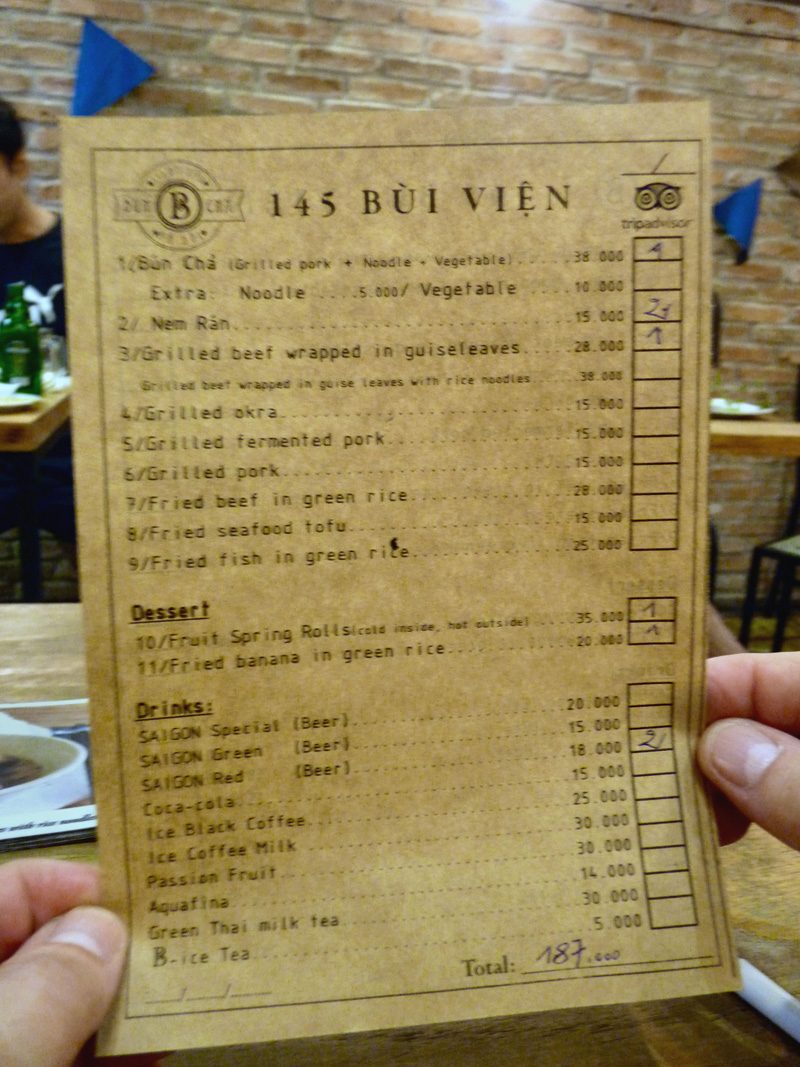 BÚN CHẢ
B
145 BÙI VIỆN
tripadvisor
1/Bún Chả (Grilled pork + Noodle + Vegetable)......38.000 1
Extra: Noodle ....5.000/ Vegetable ....10.000
2/ Nem Rán..............15.000 2
3/Grilled beef wrapped in guiseleaves.....28.000 1
Grilled beef wrapped in guise leaves with rice noodles......38.000
4/Grilled okra..............15.000
5/Grilled fermented pork..............15.000
6/Grilled pork..............15.000
7/Fried beef in green rice..............28.000
8/Fried seafood tofu..............15.000
9/Fried fish in green rice..............25.000
Dessert
10/Fruit Spring Rolls(cold inside, hot outside) ....35.000 1
11/Fried banana in green rice..............20.000 1
Drinks:
SAIGON Special (Beer)..............20.000
SAIGON Green (Beer)..............15.000
SAIGON Red (Beer)..............18.000 2
Coca-cola..............15.000
Ice Black Coffee..............25.000
Ice Coffee Milk..............30.000
Passion Fruit..............30.000
Aquafina..............14.000
Green Thai milk tea..............30.000
B-ice Tea..............5.000
Total: 187.000